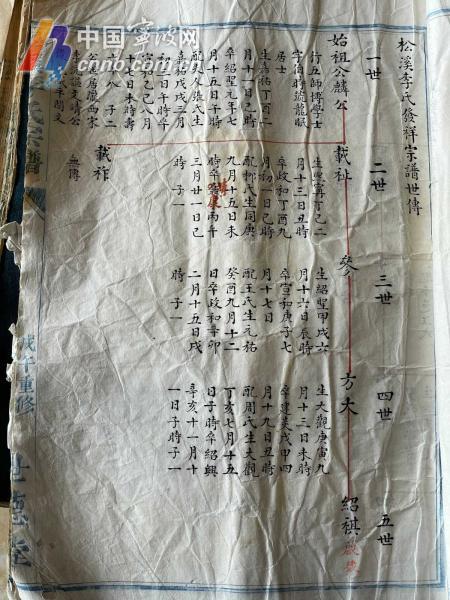 中国宁波网
cnnb.com.cn
松溪李氏發祥宗譜世傳
一世
二世
三世
四世
五世
始祖公麟公
載祉
參
方大
紹祺
載祚
無傳
行五師博學士
字伯時號龍眠
居士
生嘉祐丁酉二
月十一日巳時
卒紹聖元年七
月十五日午時
配吳冬張氏生
嘉祐戊戌三月
十三日午時卒
宣和乙巳八月
十七日未時壽
子二
生熙寧丁巳二
月十三日丑時
卒政和丁酉九
月初一日巳時
配柳氏生同庚
九月十五日未
三月廿一日巳
時子一
生紹聖甲戌六
月十六日辰時
卒宣和庚子七
月十七日
配王氏生元祐
癸酉九月十二
日卒政和辛卯
二月十五日戌
時子一
生大觀庚寅九
月十三日未時
卒建炎戊申四
月十九日丑時
配周氏生大觀
丁亥七月十五
日子時卒紹興
辛亥十一月十
一日子時子一
氏宗譜
戊午重修
世德堂